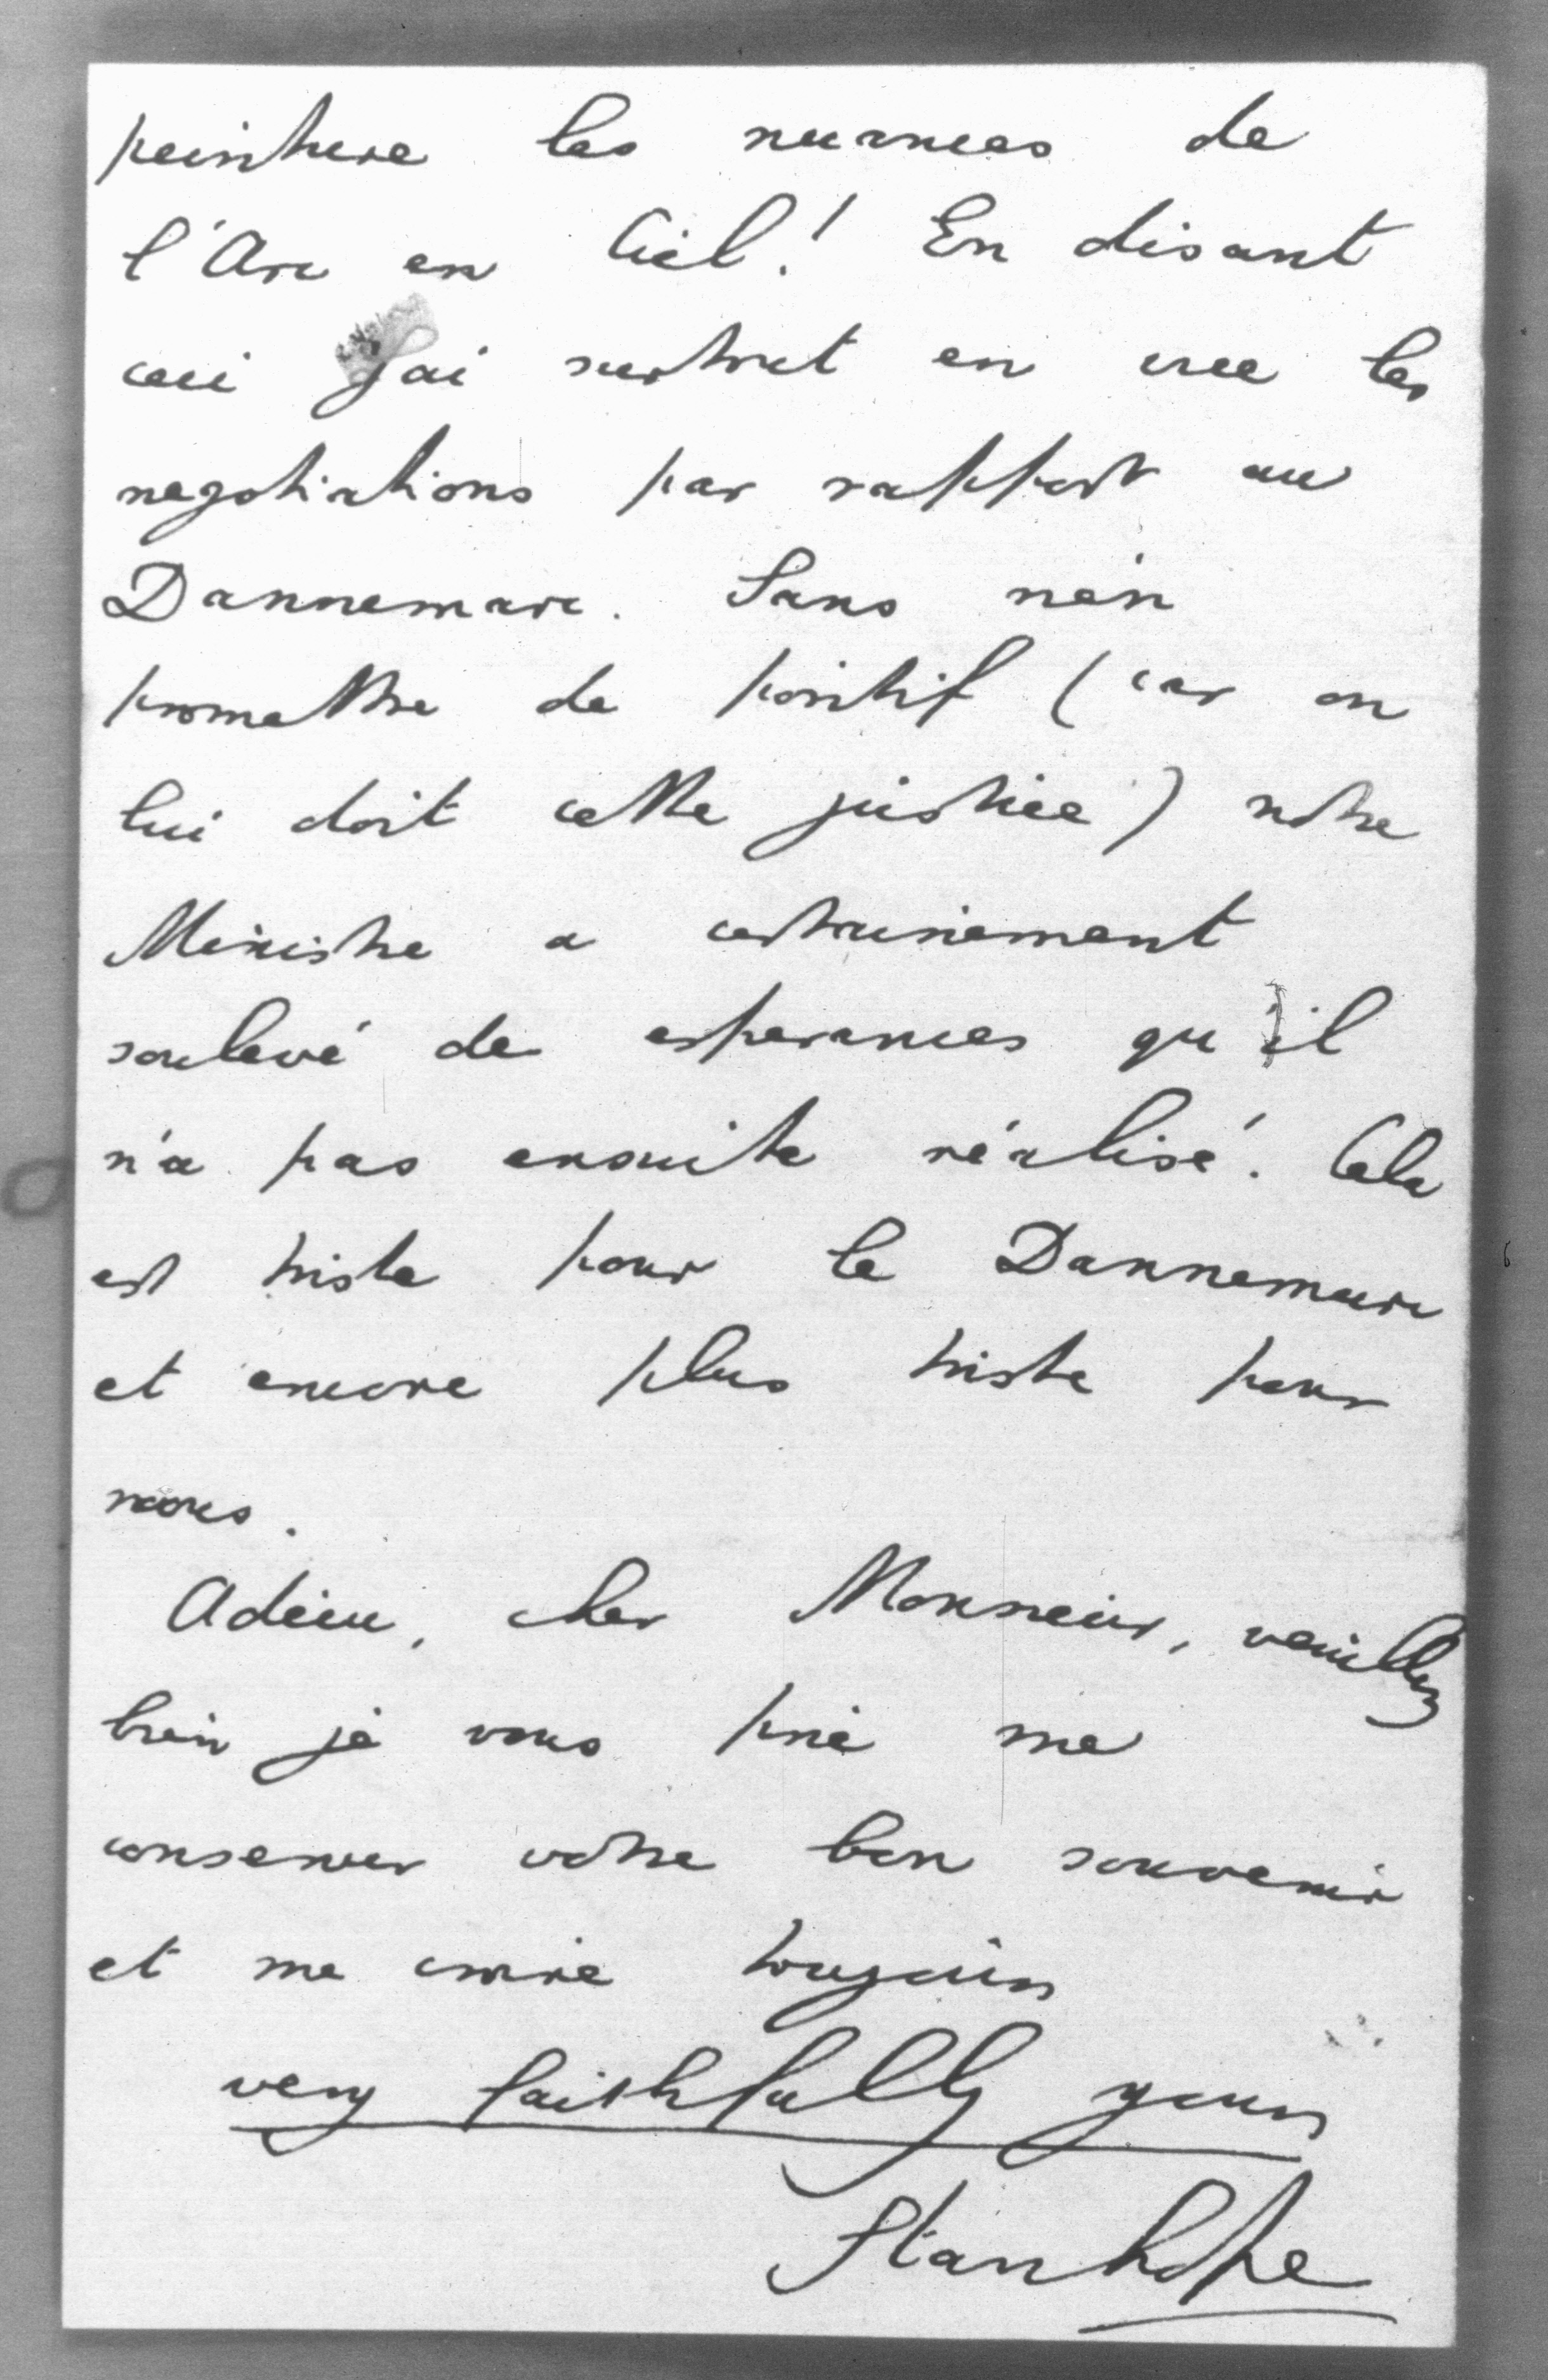 peinture les nuances de
l'Arc en Ciel! En disant
ceci J'ai surtout en vue les
negotiations par rapport au
Dannemarc. Sans rien
promettre de positif (car on
lui doit cette justice) notre
Ministre a certainement
soulevé de esperances qu'il
n'a pas ensuite réalisé. Cela
est triste pour le Dannemarc
et encore plus triste pour
nous.
Adieu, cher Monsieur, veuillez
bien je vous prie me
conserver votre bon souvenir
et me croire toujours
very faithfully yours
Stanhope